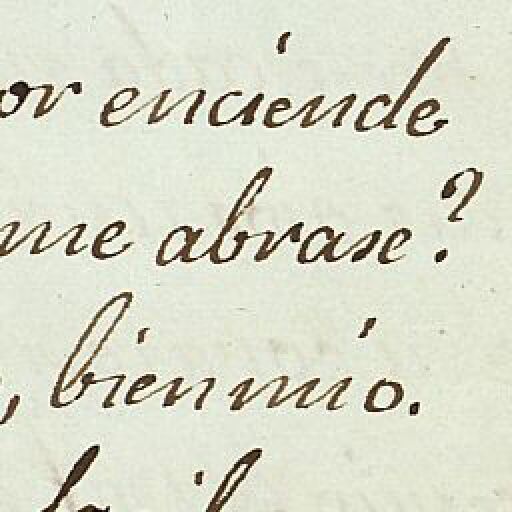 or enciende
me abrase?
, bien mio.